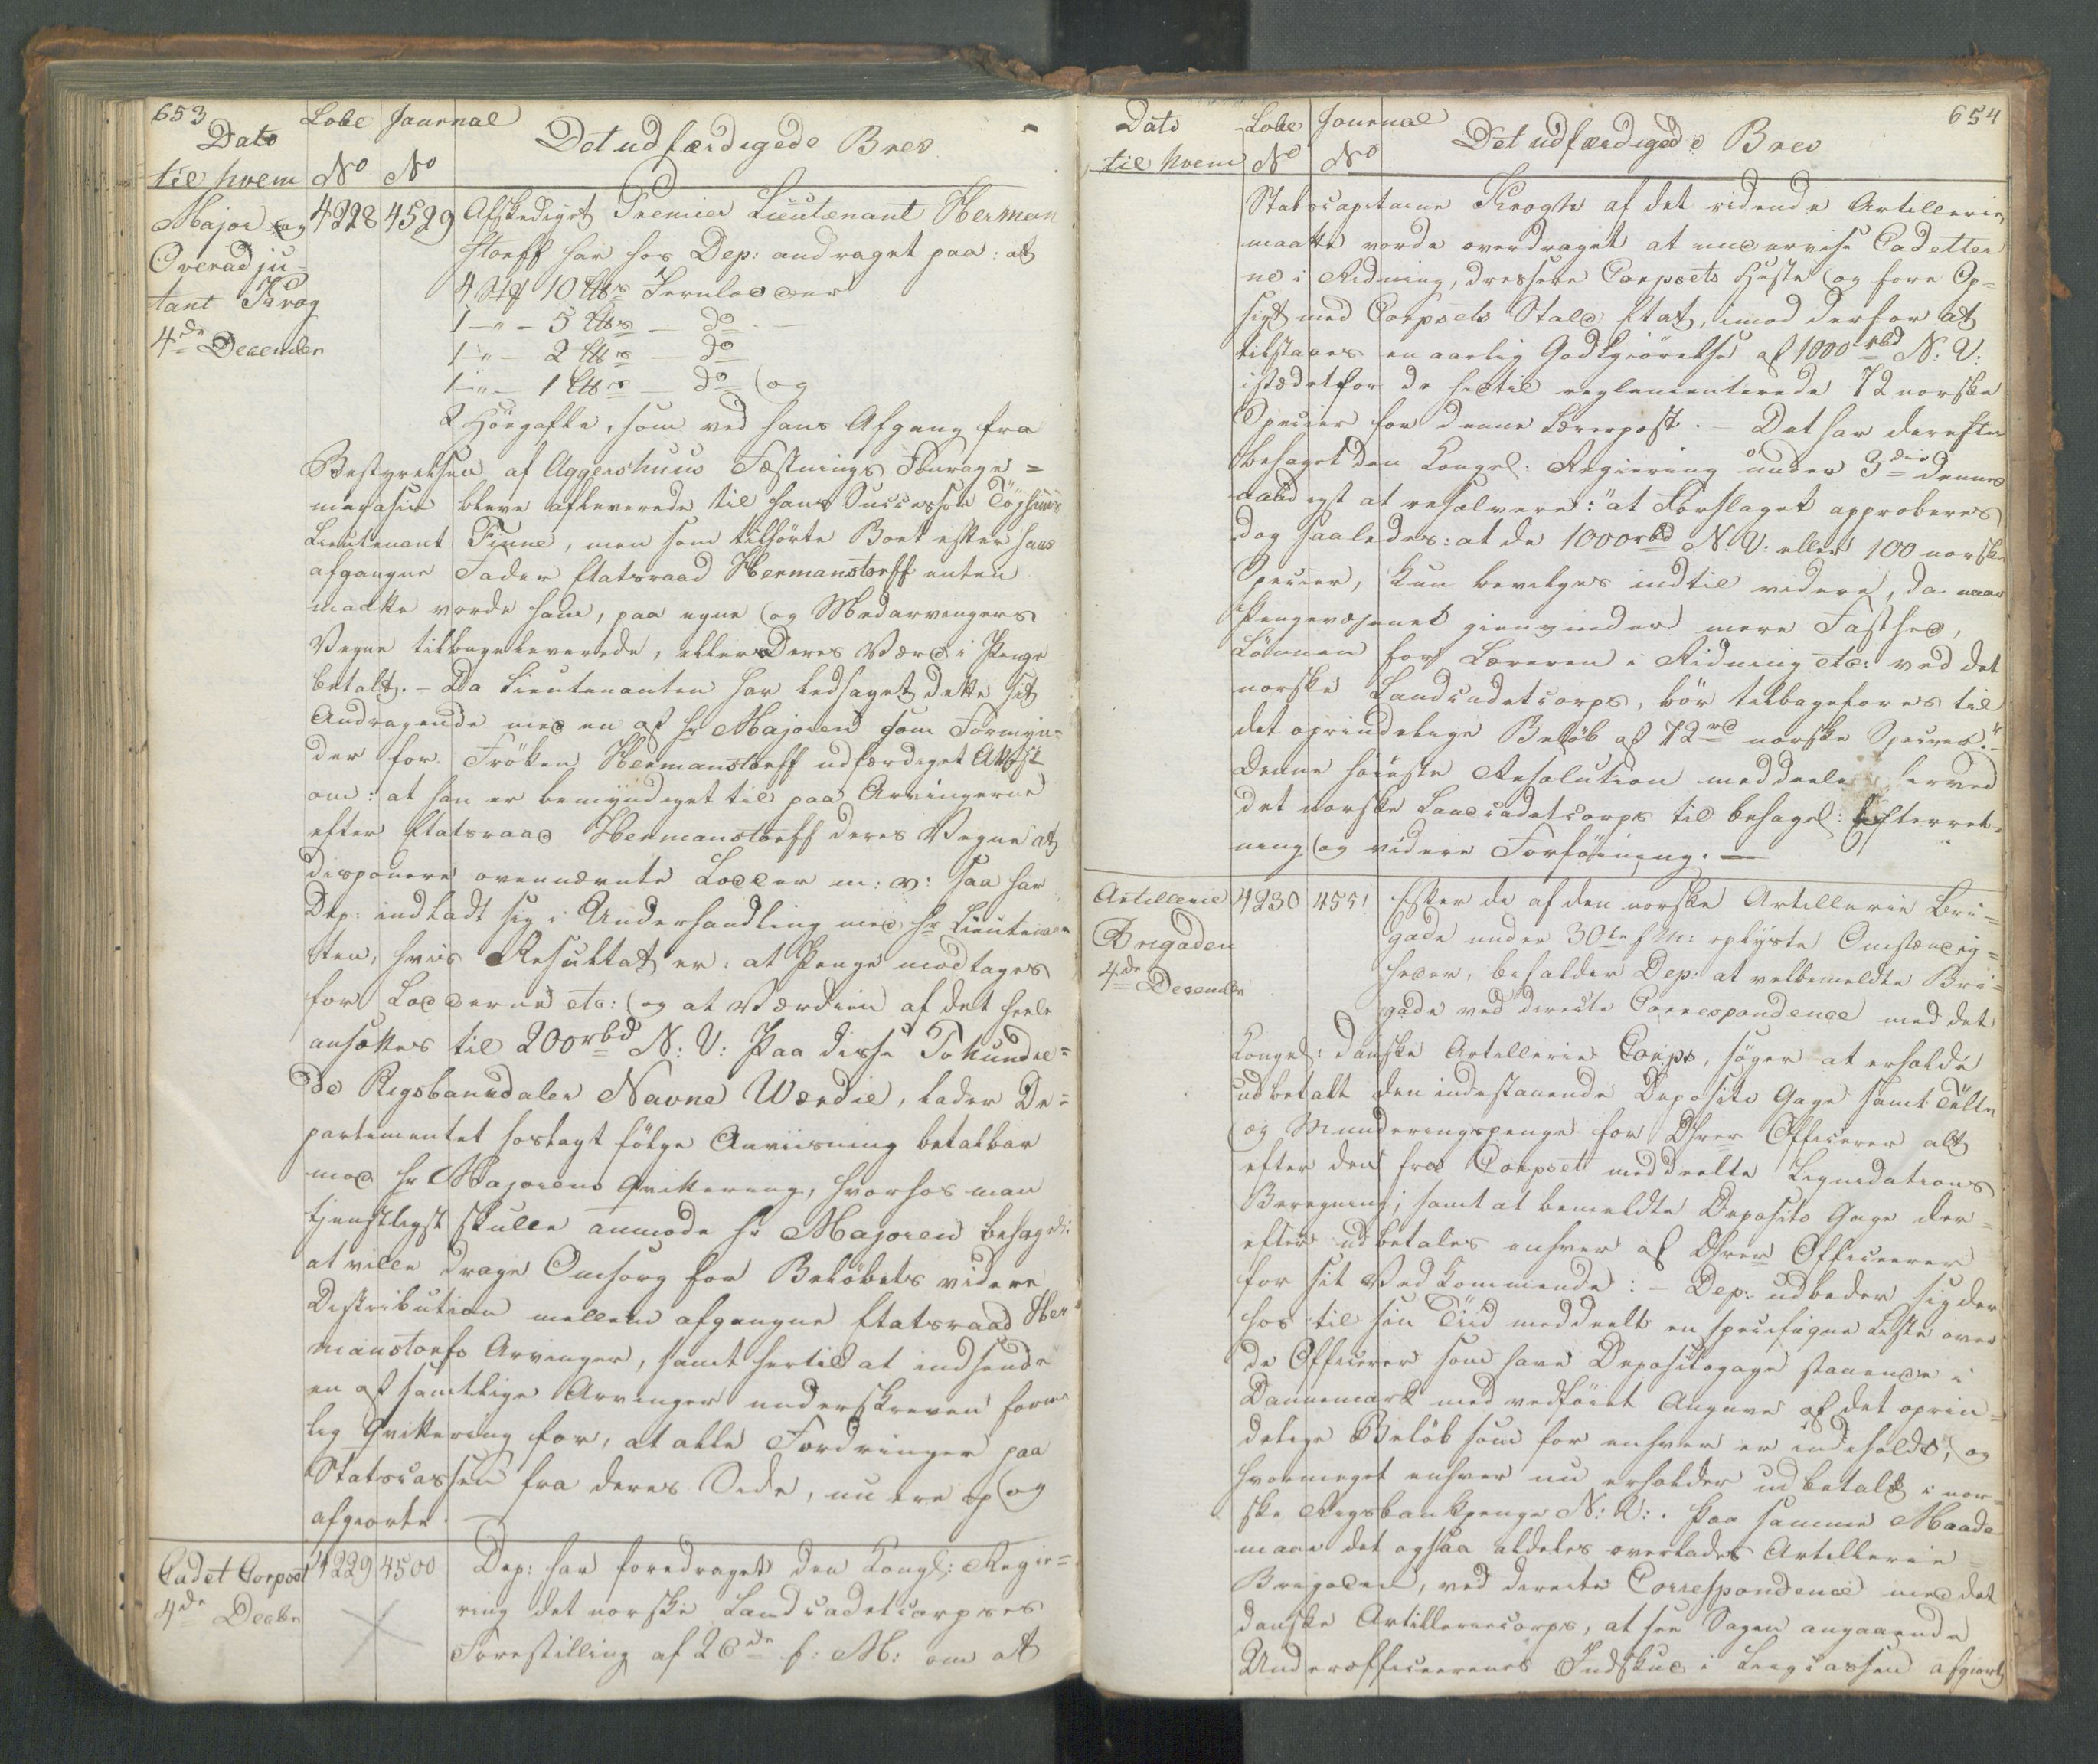 653
Dato Lobe Journal Det udfærdigede Brev
til hvem No No
Major og 4228 4529 Afskediget Premier Lieutenant Herman
Overadju= storff har hos Dep: andraget paa: at
tant Krog 4 Stk 10 Jernlodder
4de December 1 — " — 5 — do —
1 — " — 2 — do
1 — " — 1 — do og
2 som ved hans Afgang fra
Bestyrelsen af Aggershuus Fæstnings Fourage=
magasin bleve afleverede til hans Successor Töjhuus
Lieutenant Finne, men som tilhörte Boet efter hans
afgangne Fader Etatsraad Hermanstorff enten
maatte vorde ham, paa egne og Medarvingers
Vegne tilbageleverede, eller deres Værd i Penge
betalt. — Da Lieutenanten har ledsaget dette sit
Andragende med en af Hr Majoren som Formyn=
der for Fröken Hermanstorff udfærdiget Attest
om: at han er bemyndiget til paa Arvingerne
efter Etatsraad Hermanstorff deres Vegne at
disponere ovennævnte Lodder m: v: saa har
Dep: indladt sig i Underhandling med Hr Lieutenan
ten, hvis Resultat er: at Penge modtages
for Lodderne etc: og at Værdien af det heele
ansættes til 200 rbd N: V: Paa disse To hundre=
de Rigsbankdaler Navne Værdie, lader De=
partementet hoslagt fölge Anviisning betalbar
mod Hr Majorens Qvittering, hvorhos man
tjenstligst skulle anmode Hr Majoren behagel:
at ville drage Omsorg for Belöbets videre
Distribution mellem afgangne Etatsraad Her
manstorfs Arvinger, samt hertil at indsende
en af samtlige Arvinger underskreven form
lig Qvittering for, at alle Fordringer paa
Statscassen fra deres Side, nu ere op og
afgiorte. —
Cadet Corpset 4229 4500 Dep: har foredraget den Kongl: Regie=
4de Decbr ring det norske Landcadetcorpses
Forestilling af 26de f: M: om at
654
Dato Lobe Journal Det udfærdigede Brev
til hvem No No
Stabscapitaine Krogh af det ridende Artillerie,
maatte vorde overdraget at underviise Cadetter
ne i Ridning, dressere Corpsets Heste og före Op=
sigt med Corpsets Stald Etat, imod derfor at
tilstaaes en aarlig Godtgiörelse af 1000 rbd N: V:
istædetfor de hertil reglementerede 72 norske
Specier for denne Lærerpost. — Det har derefter
behaget den Kongel: Regiering under 3die dennes
naadigst at resolvere: "at Forslaget approberes
dog saaledes: at de 1000 rbd N: V. eller 100 norske
Specier, kun bevilges indtil videre, da naar
Pengevæsenet gienvinder mere Fasthed,
Lönnen for Læreren i Ridning etc: ved det
norske Landcadetcorps, bör tilbageföres til
det oprindelige Belöb af 72 norske Specier." —
Denne höieste Resolution meddeeles herved
det norske Landcadetcorps til behagel: Efterret=
ning og videre Forföining. —
Artillerie 4230 4551 Efter de af den norske Artillerie Bri=
Brigaden gade under 30te f M: oplyste Omstændig=
4de December heder, beholder Dep: at velbemeldte Bri=
gade ved directe Correspondence med det
Kongel: danske Artillerie Corps, söger at erholde
udbetalt den indestaaende Deposito Gage samt Telte
og Munderingspenge for DHrer Officerer alt
efter den fra Corpset meddeelte Liqvidations
Beregning; samt at bemeldte Deposito Gage der=
efter udbetales enhver af DHrer Officeerer
for sit Vedkommende: — Dep: udbeder sig der
hos til sin Tiid meddeelt en specifiqve Liste over
de Officerer som have Depositogage staaende i
Dannemark med vedföiet Angave af det oprin=
delige Belöb som for enhver er indeholdt, og
hvormeget enhver nu erholder udbetalt i nor=
ske Rigsbankpenge N: V: . Paa samme Maade
maae det ogsaa aldeles overlades Artillerie=
Brigaden, ved directe Correspondence med det
danske Artilleriecorps, at see Sagen angaaende
Underofficeerernes Indskud i afgiort